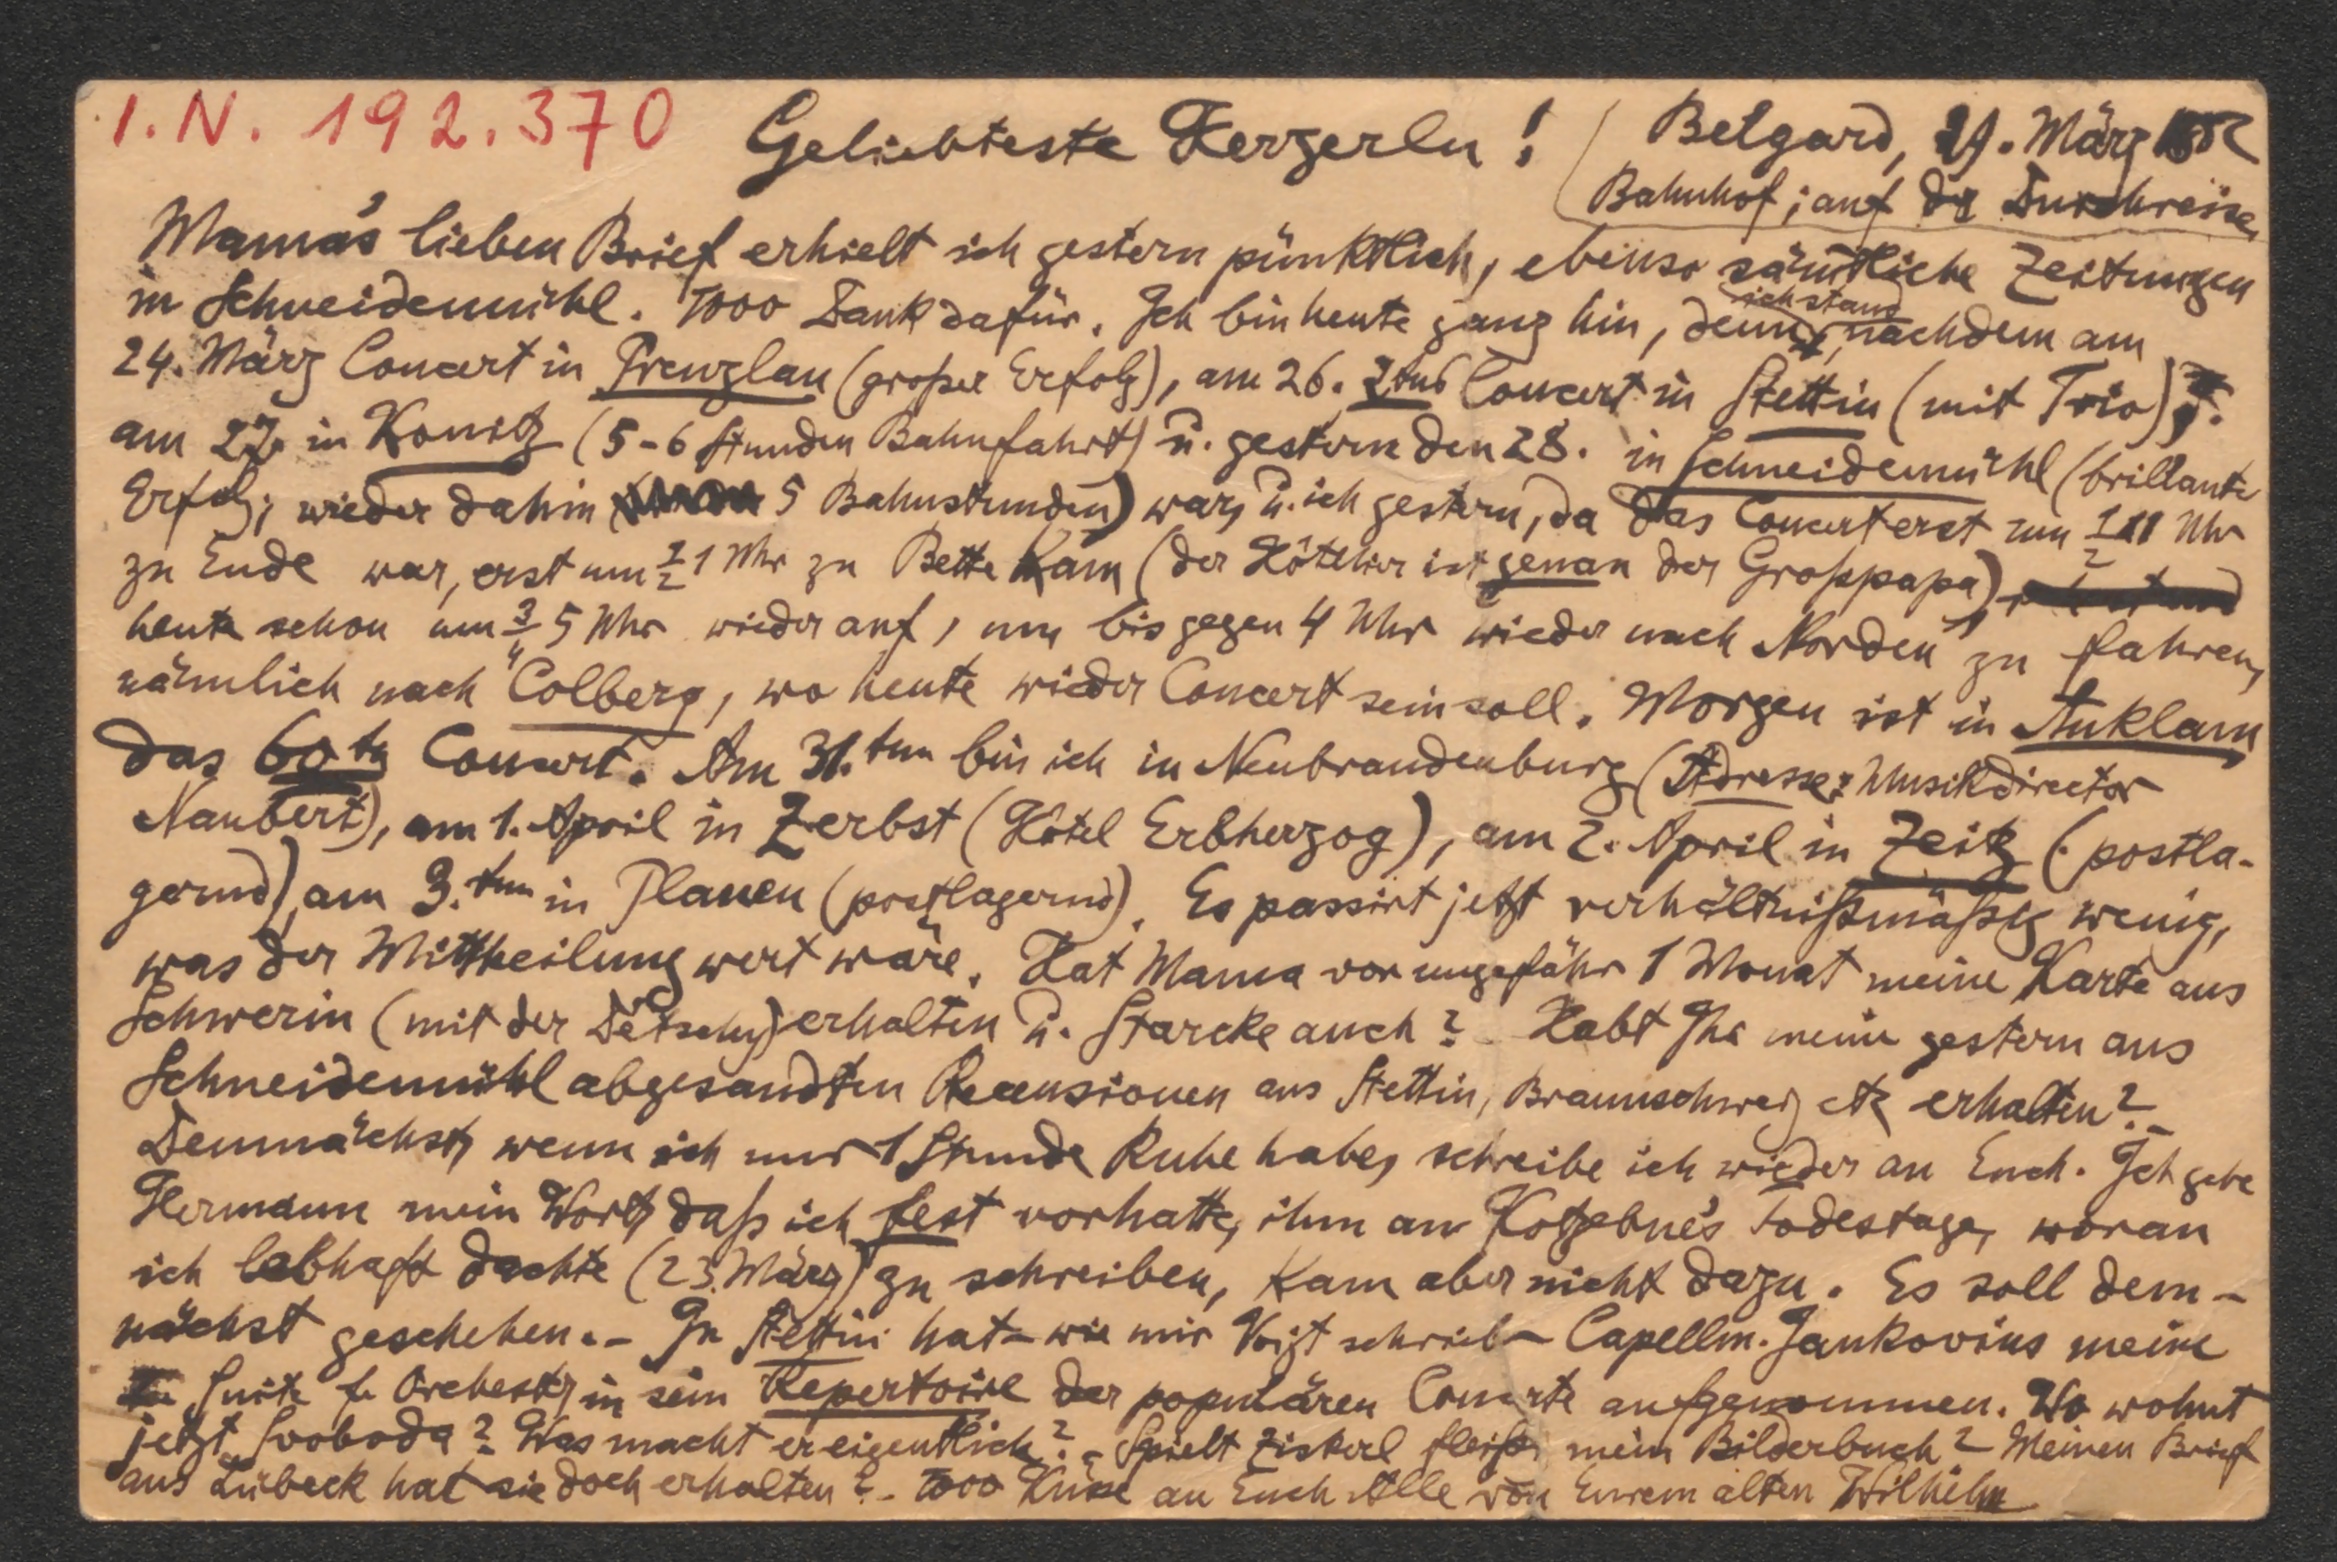 I.N. 192.370
Geliebteste Herzerln!
Belgard, 29. März
Bahnhof; auf der Durchreise,
Mama's lieben Brief erhielt ich gestern pünktlich, ebenso sämtliche Zeitungen
in Schneidemühl. 1000 Dank dafür. Ich bin heute ganz hin, denn ich stand, nachdem am
24. März Concert in Prenzlau (großer Erfolg), am 26. 2tes Concert in Stettin (mit Trio),
am 27. in Konitz (5-6 Stunden Bahnfahrt) u. gestern den 28. in Schneidemühl (brillanter
Erfolg; wieder dahin 5 Bahnstunden) war, u. ich gestern, da das Concert erst um ½11 Uhr
zu Ende war, erst um ½1 Uhr zu Bette kam (der Hôtelier ist genau der Großpapa),
heute schon um ¾5 Uhr wieder auf, um bis gegen 4 Uhr wieder nach "Norden" zu fahren,
nämlich nach Colberg, wo heute wieder Concert sein soll. Morgen ist in Anklam
das 60te Concert. Am 31.ten bin ich in Neubrandenburg (Adresse: Musikdirector
Naubert), am 1. April in Zerbst (Hôtel Erbherzog), am 2. April in Zeitz (postla-
gernd), am 3.ten in Plauen (postlagernd). Es passirt jetzt verhältnißmäßig wenig,
was der Mittheilung wert wäre. Hat Mama vor ungefähr 1 Monat meine Karte aus
Schwerin (mit der Detschy) erhalten u. Starcke auch? Habt Ihr meine gestern aus
Schneidemühl abgesandten Recensionen aus Stettin, Braunschweig etc erhalten? –
Demnächst, wenn ich nur 1 Stunde Ruhe habe, schreibe ich wieder an Euch. Ich gebe
Hermann mein Wort, daß ich fest vorhatte, ihm an Kotzebue's Todestage, woran
ich lebhaft dachte (23. März) zu schreiben, kam aber nicht dazu. Es soll dem-
nächst geschehen. – In Stettin hat – wie mir Voigt schrieb – Capellm. Jankovius meine
Suite f. Orchester in sein Repertoire der populären Concerte aufgenommen. Wo wohnt
jetzt Svoboda? Was macht er eigentlich? – Spielt Ziskerl fleißig mein Bilderbuch? Meinen Brief
aus Lübeck hat sie doch erhalten? – 1000 Küsse an Euch Alle von Eurem alten Wilhelm